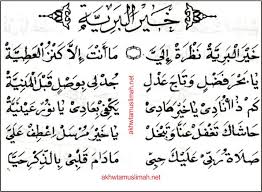 خَيْرُ الْبَرِيَّة
خَيْرَ الْبَرِيَّةْ نَظْرَةْ إِلَيَّ مَا أَنْتَ إِلَّا كَنْزُ الْعَطِيَّةْ
يَا بَحْرَ فَضْلٍ وَتَاجَ عَدْلِ جُدْ لِي بِوَصْلٍ قَبْلَ الْمَنِيَّةْ
كَمْ ذَا أُنَادِي يَا خَيْرَ هَادِي يَكْفِي بِعَادِي يَا نُورَ عَيْنَيَّ
حَاشَاكَ تَغْفُلْ عَنَّا وَتَبْخَلْ يَا خَيْرَ مُرْسَلْ اِعْطِفْ عَلَيَّ
صَلَاةُ رَبِّي عَلَيْكَ حِبِّي مَا دَامَ قَلْبِي بِالذِّكْرِ حَيَّا
akhwatmuslimah.net
akhwatmuslimah.net